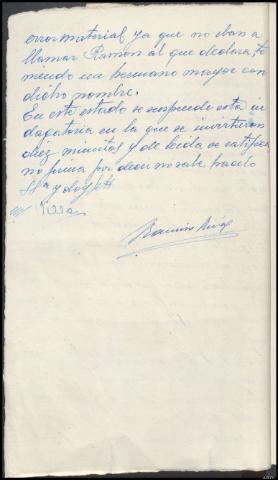 error material ya que no iban a
llamar Ramon al que declara, te
niendo un hermano mayor con
dicho nombre.
En este estado se suspende esta in
dagatoria en la que se invirtieron
diez minutos y de leida se ratifica
no firma por decir no sabe hacerlo
Sª y doy fé
Ramón